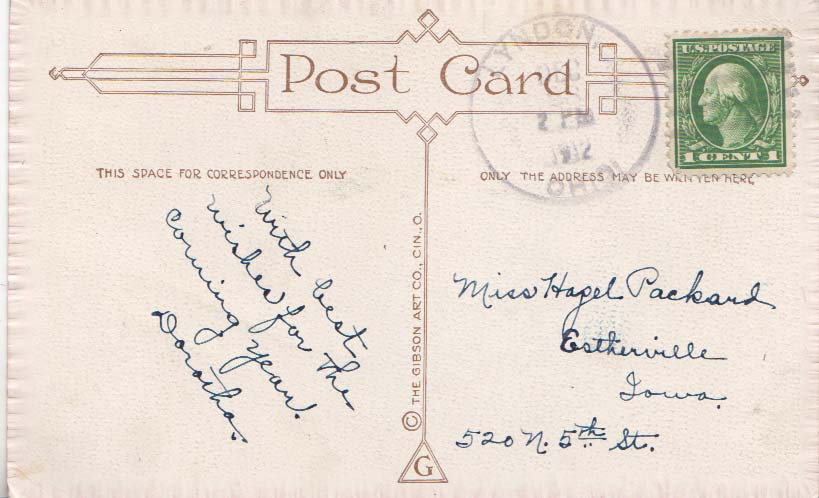 Post Card
LYNDON,
DEC
2 PM
1912
OHIO
U.S. POSTAGE
1 CENT 1
THIS SPACE FOR CORRESPONDENCE ONLY
ONLY THE ADDRESS MAY BE WRITTEN HERE
With best
wishes for the
coming year.
Dorotha.
© THE GIBSON ART CO., CIN., O.
G
Miss Hazel Packard
Estherville
Iowa.
520 N. 5th St.